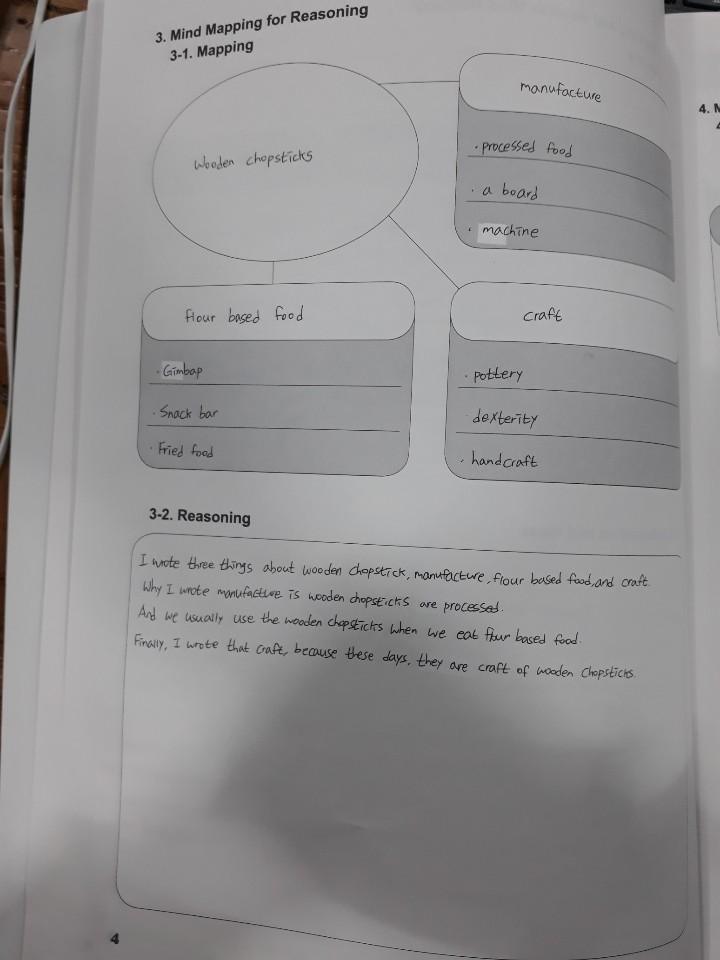 3. Mind Mapping for Reasoning
3-1. Mapping
Wooden chopsticks
manufacture
· processed food
· a board
· machine
flour based food
· Gimbap
· Snack bar
· Fried food
craft
· pottery
· dexterity
· handcraft
3-2. Reasoning
I wrote three things about wooden chopstick, manufacture, flour based food, and craft.
Why I wrote manufacture is wooden chopsticks are processed.
And we usually use the wooden chopsticks when we eat flour based food.
Finally, I wrote that craft, because these days, they are craft of wooden chopsticks.
4
4.